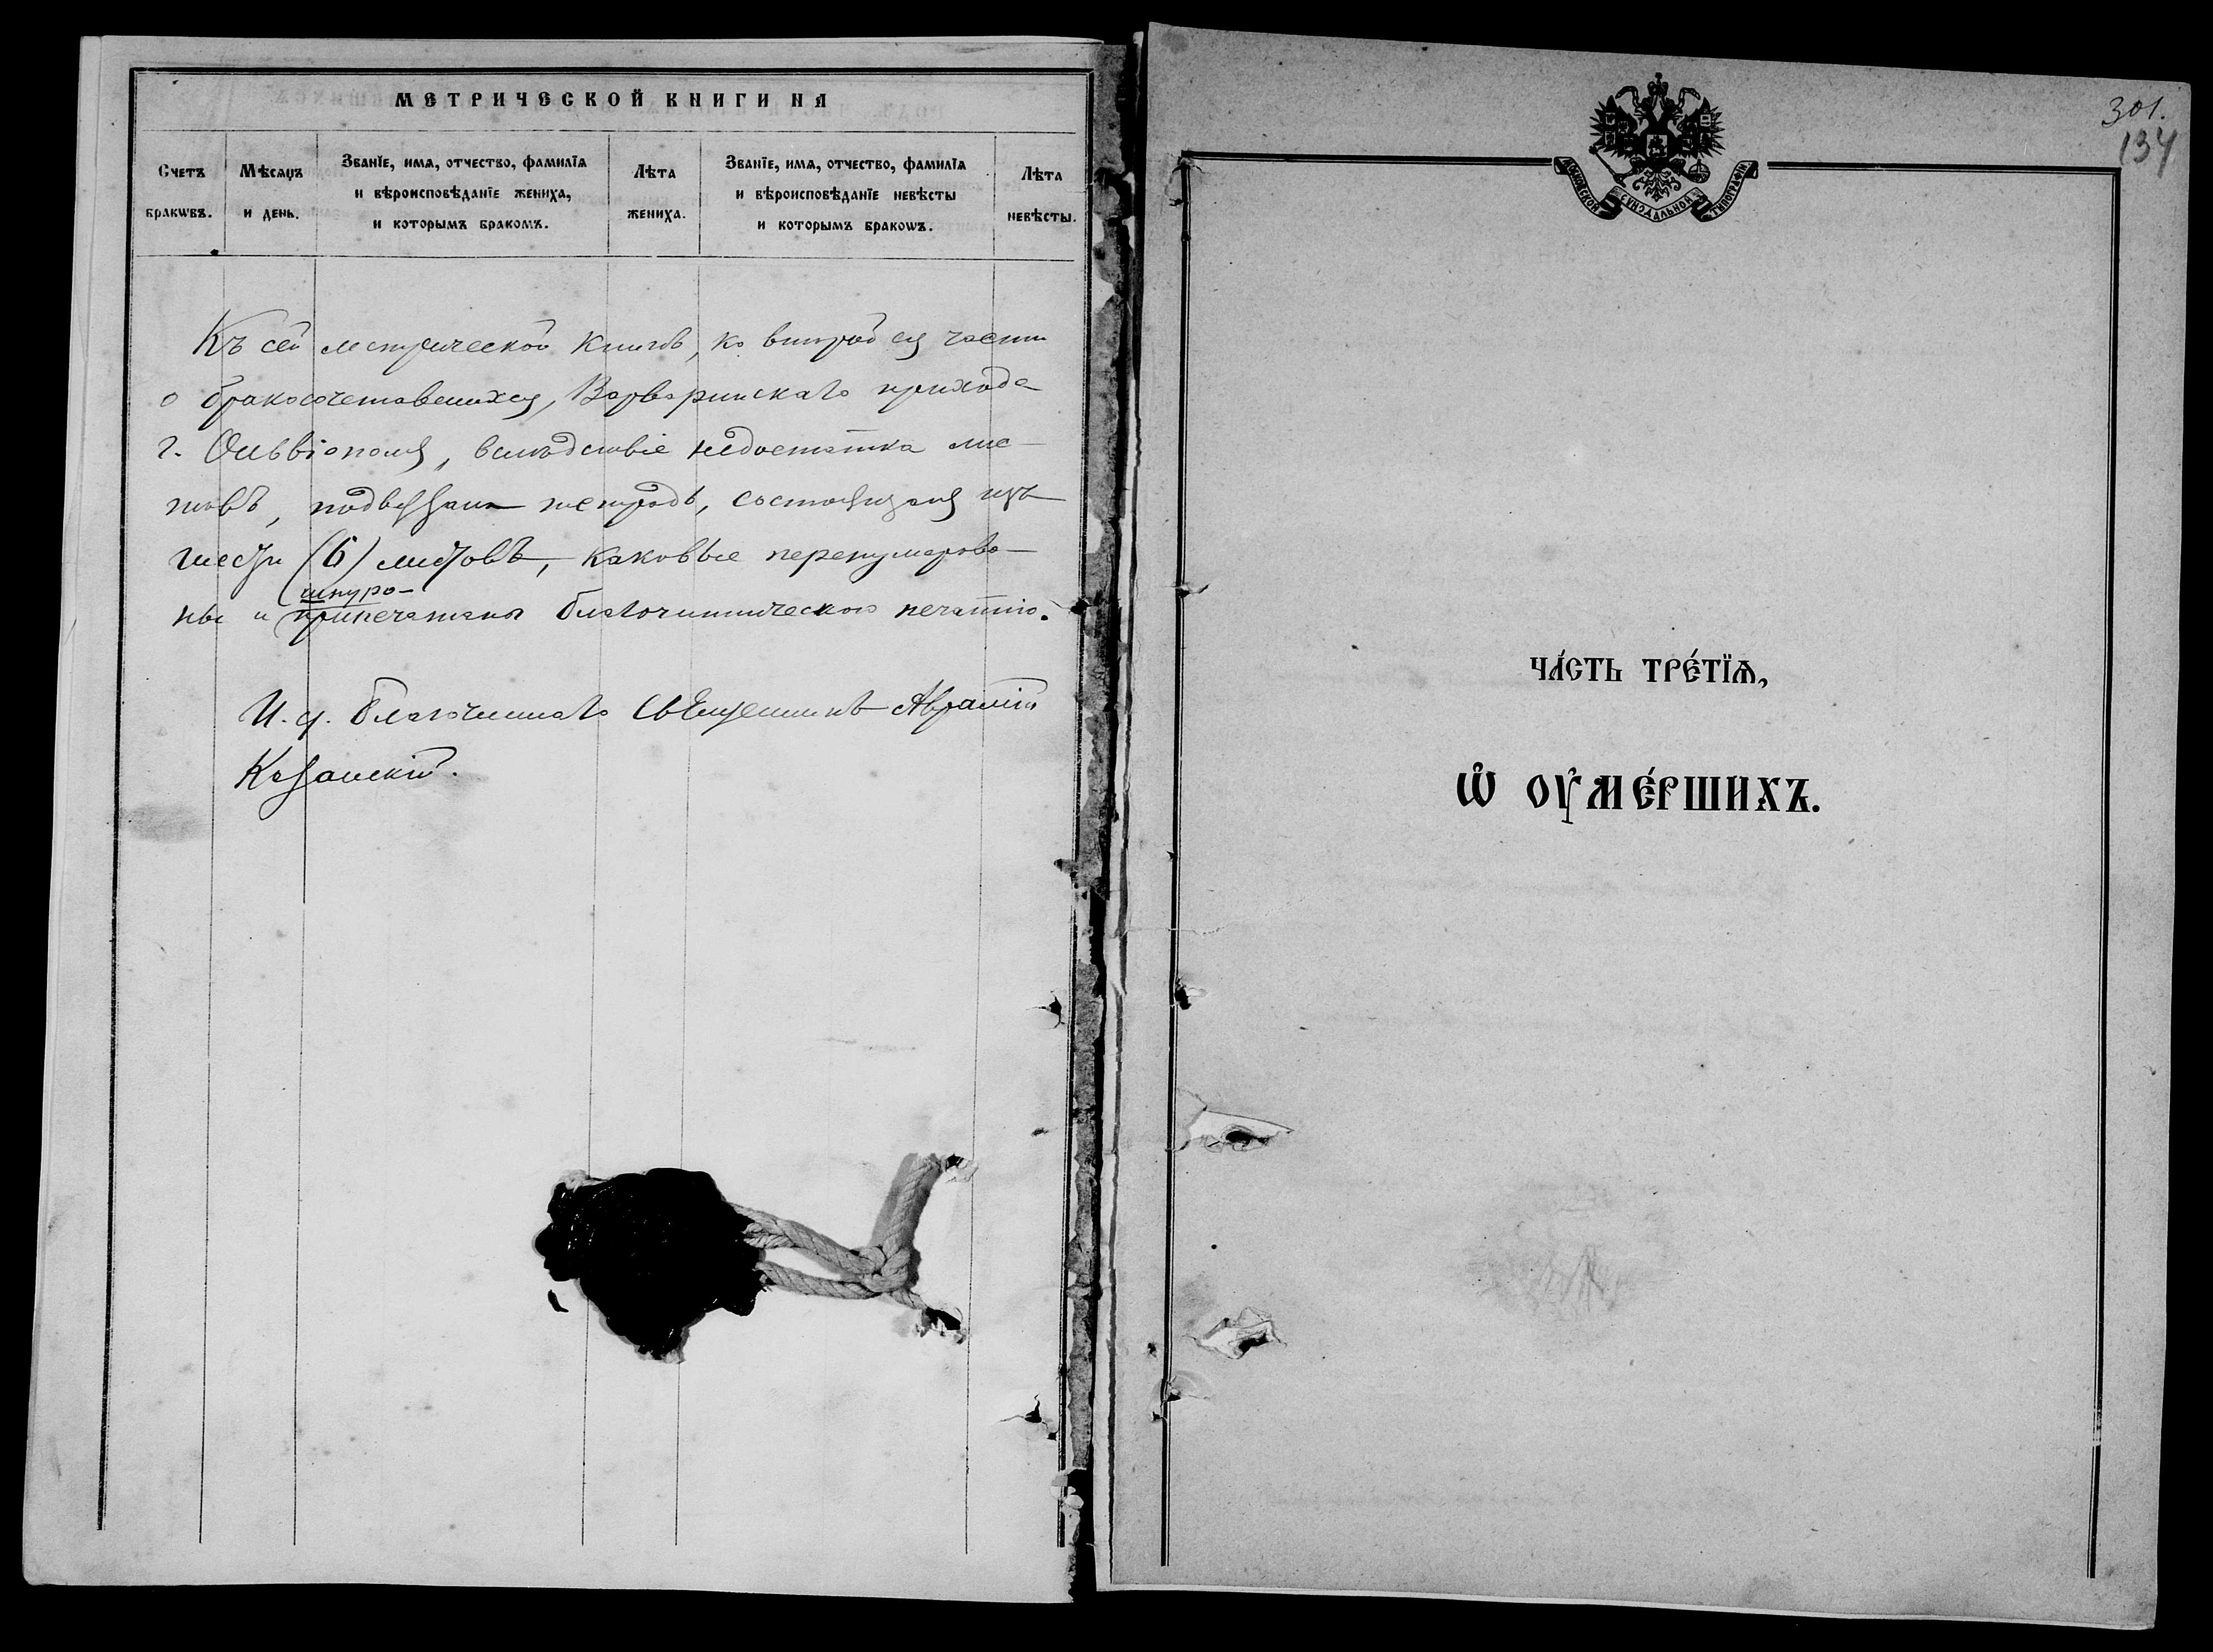 МЕТРИЧЕСКОЙ КНИГИ НА
Счетъ
бракѡвъ.
Мѣсѧцъ
и день.
Званїе, имѧ, отчество, фамилїѧ
и вѣроисповѣданїе жениха,
и которымъ бракомъ.
Лѣта
жениха.
Званїе, имѧ, отчество, фамилїѧ
и вѣроисповѣданїе невѣсты
и которымъ бракомъ.
Лѣта
невѣсты.
Къ сей метрической книгѣ, ко второй ея части
о бракосочетавшихся, Варваринскаго прихода
г. Ольвіополя, вслѣдствіе недостатка лис-
товъ, подвязана тетрадь, состоящая изъ
шести (6) листовъ, каковые перенумерова-
шнуро-
ны и припечатаны благочинническою печатью.
И. д. благочиннаго Священникъ Аврамій
Казанскій.
301.
134
МОСКОВСКОЙ СУНОДАЛЬНОЙ ТИПОГРАФІИ
ЧА́СТЬ ТРЕ́ТЇѦ,
Ѽ ОУ҆МЕ́РШИХЪ.